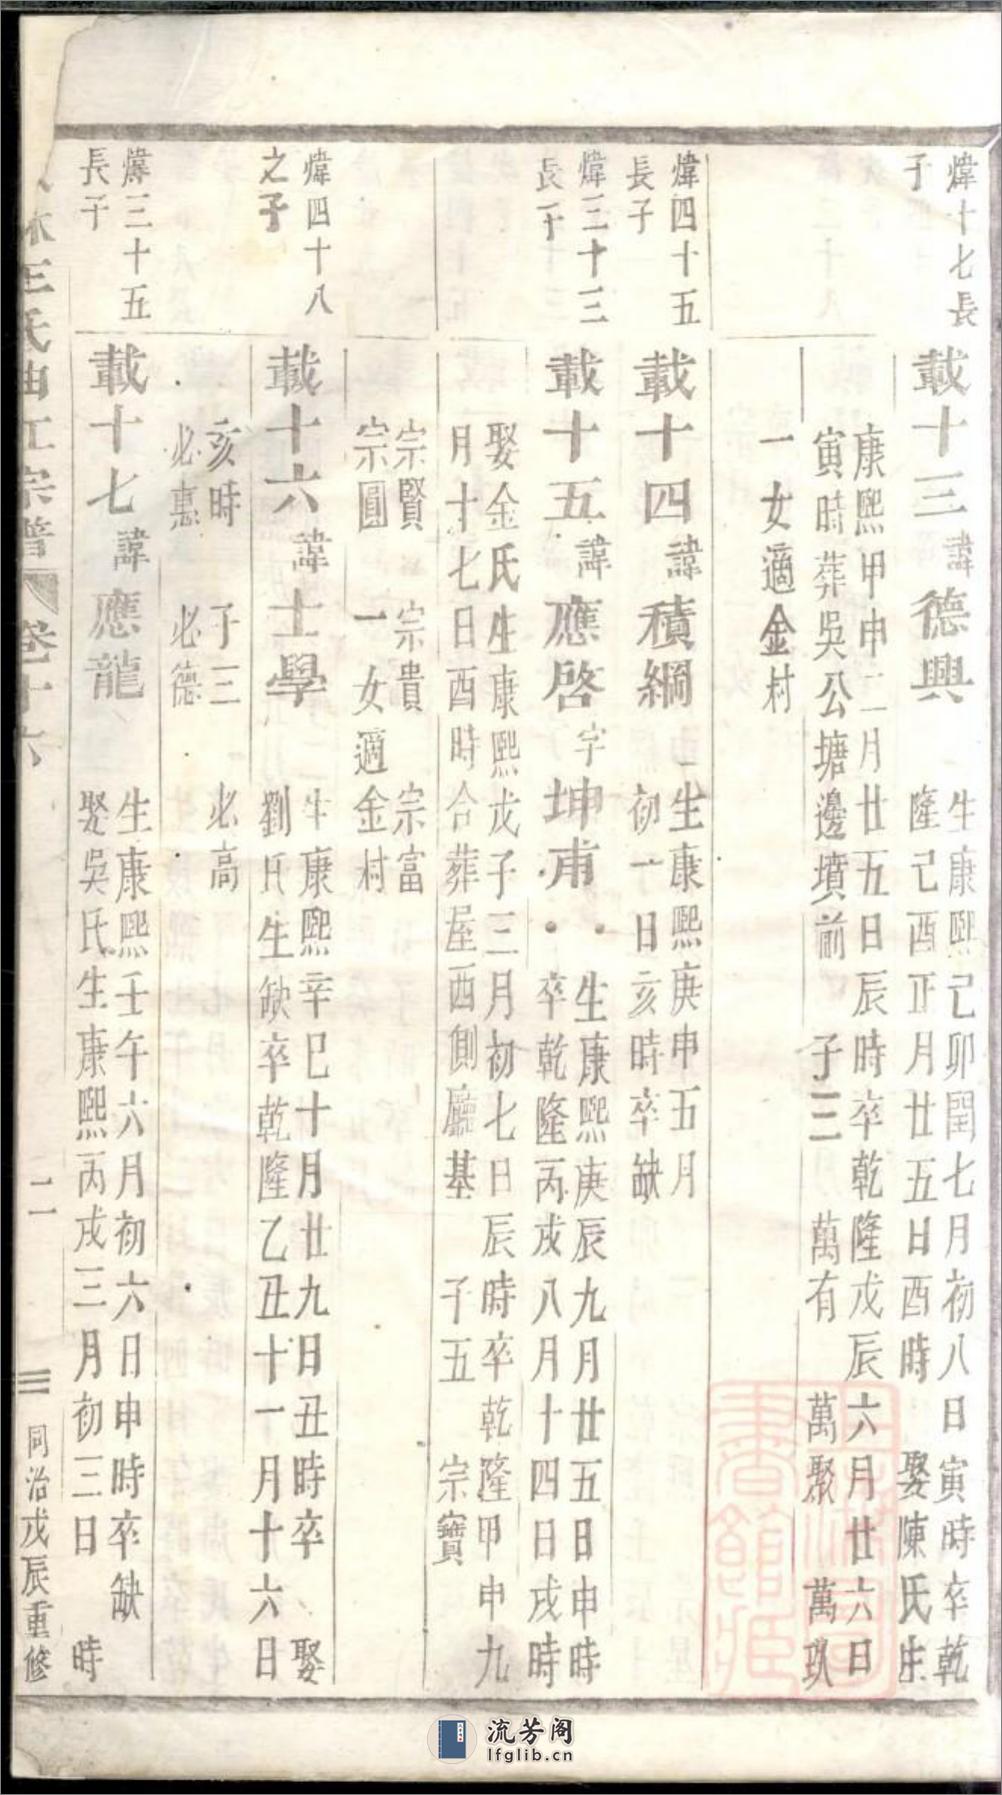 煒十七長
子
載十三諱德興
生康熙己卯閏七月初八日寅時卒乾
隆己酉正月廿五日酉時 娶陳氏生
康熙甲申二月廿五日辰時卒乾隆戊辰六月廿六日
寅時葬吳公塘邊墳前 子三 萬有 萬聚 萬玖
一女適金村
煒四十五
長子
載十四諱積綱
生康熙庚申五月
初一日亥時卒缺
煒三十三
長子
載十五諱應啓字坤甫
生康熙庚辰九月廿五日申時
卒乾隆丙戌八月十四日戌時
娶金氏生康熙戊子三月初七日辰時卒乾隆甲申九
月十七日酉時合葬屋西側廳基 子五 宗寶
宗賢 宗貴 宗富
宗圓 一女適金村
煒四十八
之子
載十六諱士學
生康熙辛巳十月廿九日丑時卒 娶
劉氏生缺卒乾隆乙丑十一月十六日
亥時 子三 必高
必惠 必德
煒三十五
長子
載十七諱應龍
生康熙壬午六月初六日申時卒缺
娶吳氏生康熙丙戌三月初三日 時
林王氏曲江宗譜 卷十六 二 同治戊辰重修
流芳阁
lfglib.cn